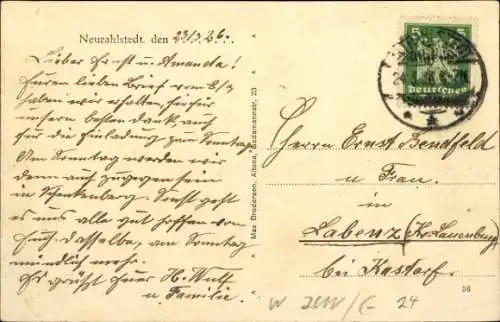 Neurahlstedt, den 23/3.26.
Lieber Ernst u. Amanda!
Euren lieben Brief vom
haben wir erhalten, hierfür
unsern besten Dank, auch
für die Einladung zum Sonntag.
Am Sonntag werden wir
denn auch zugegen sein
in Schenkenberg. Sonst geht
es uns alle gut hoffen von
Euch dasselbe, am Sonntag
mündlich mehr.
Es grüßt Euer H. Wulf
u. Familie.
Max Broderson, Altona, 23
5 5
Deutsches
Herrn Ernst Bendfeld
u Frau.
in
Labenz (Kr. Lauenburg)
bei Kastorf.
56
24